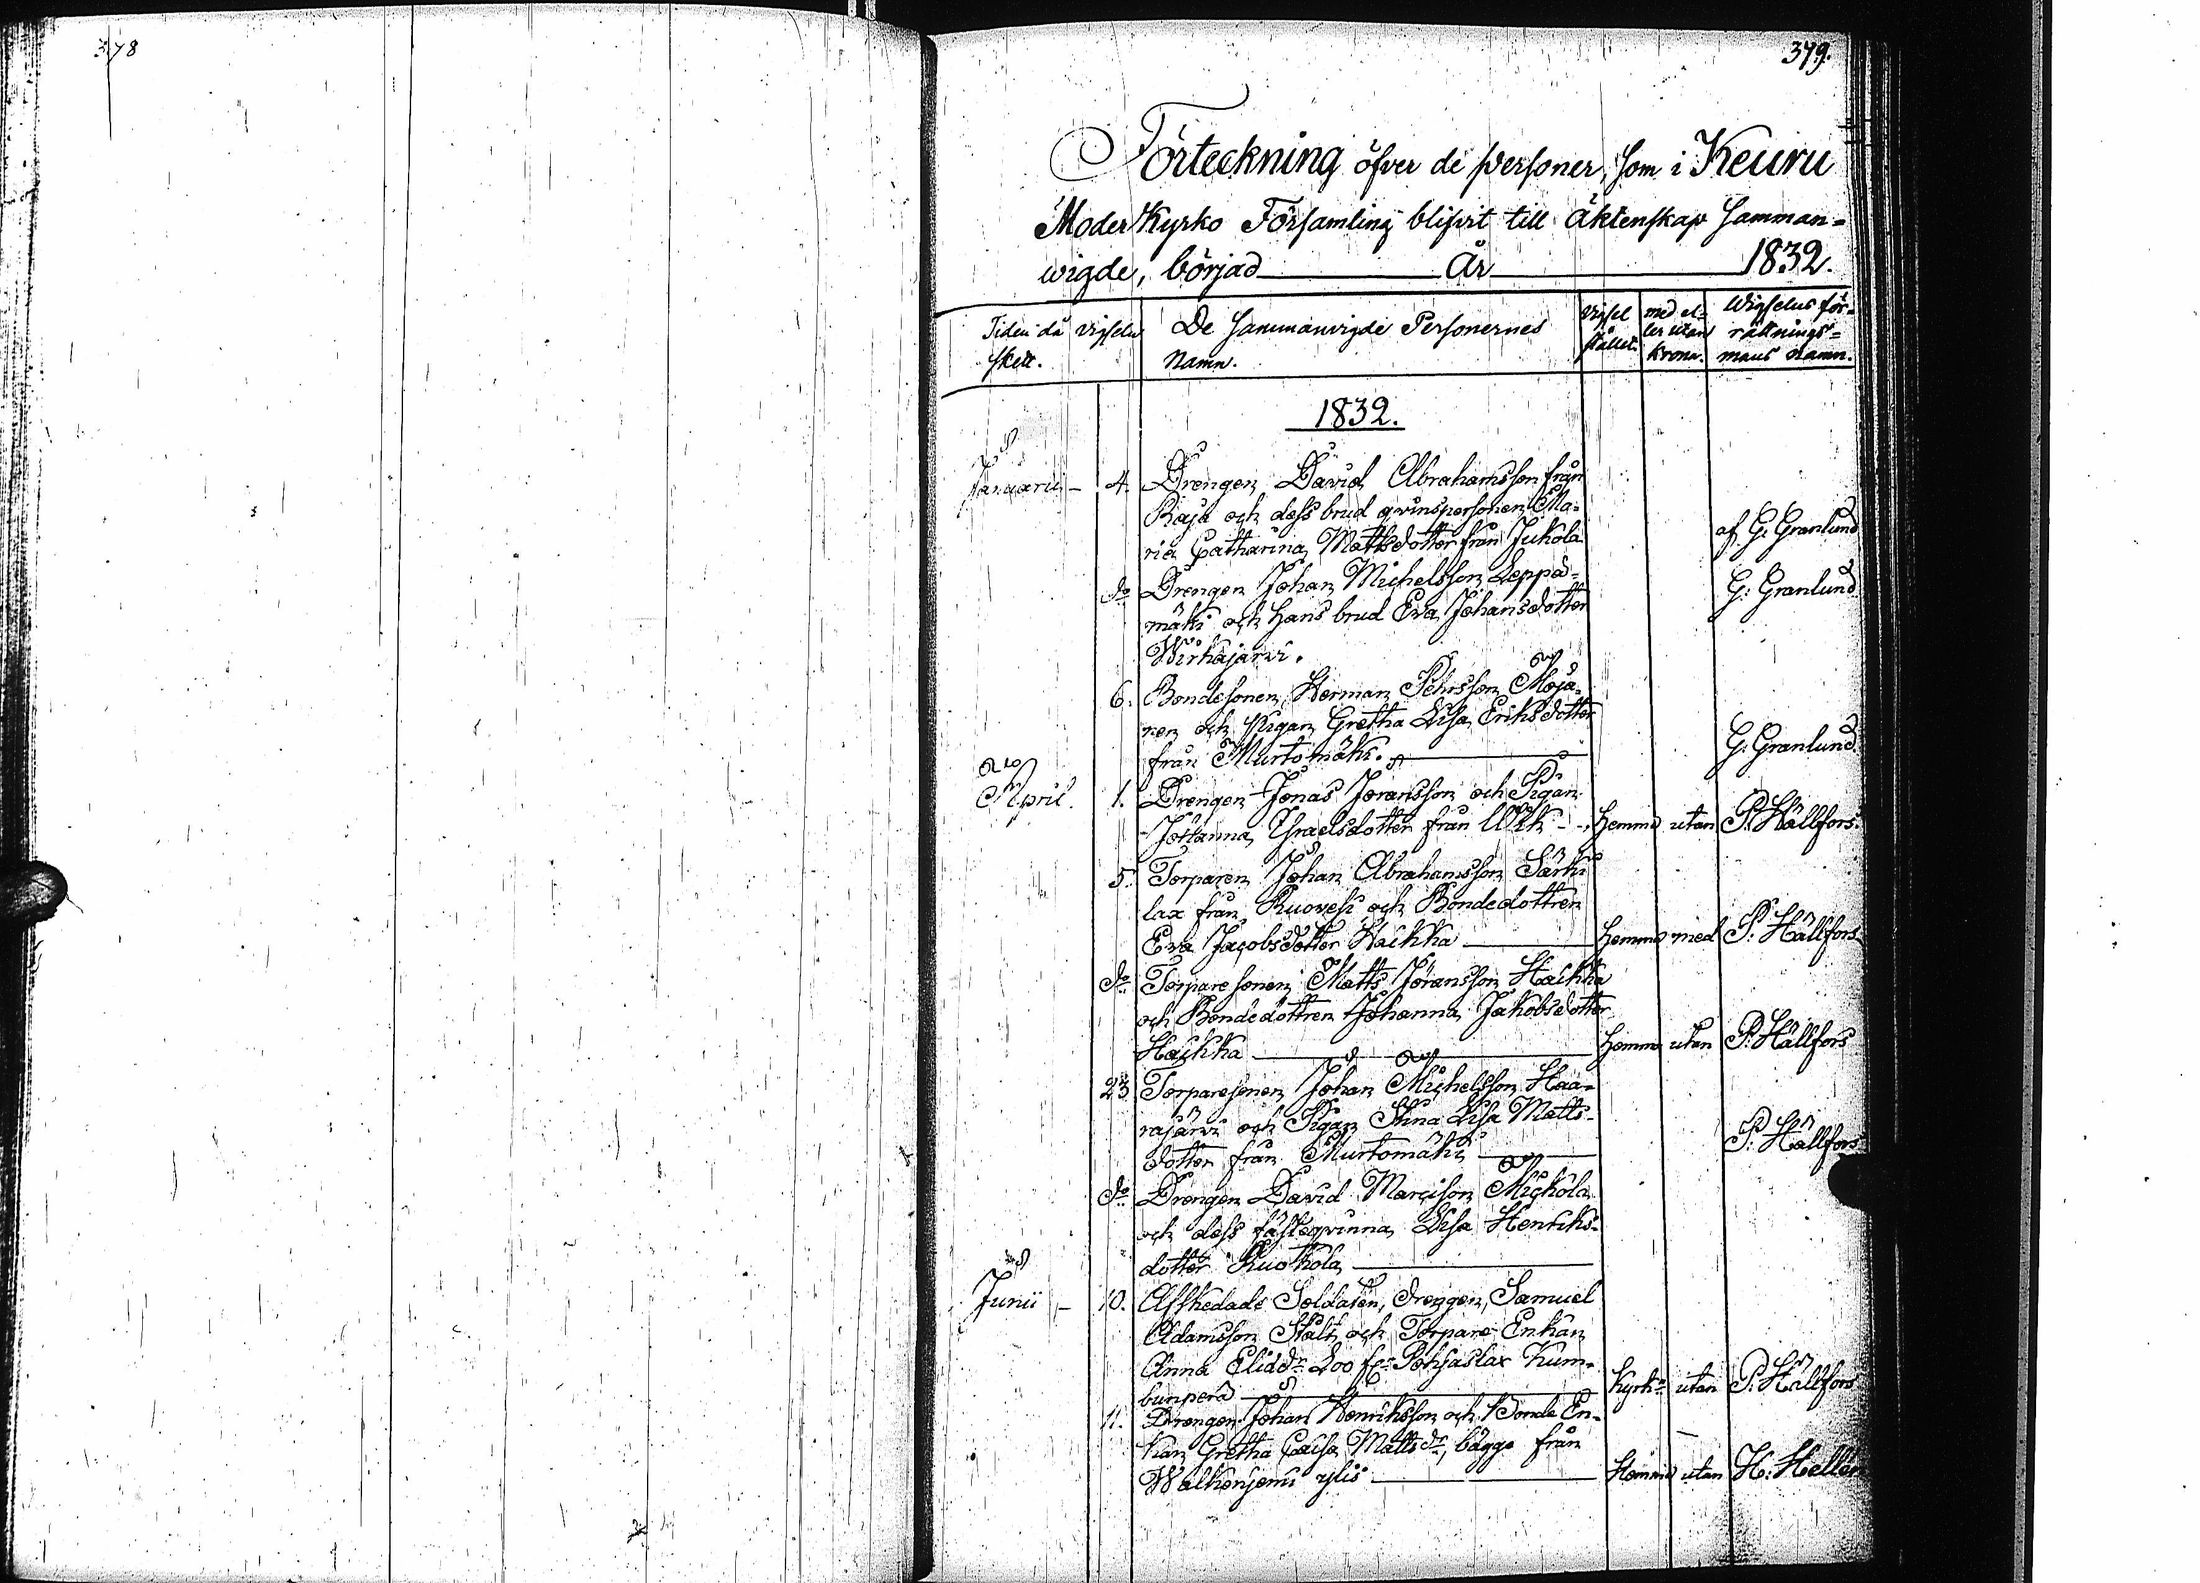 378
379.
Förteckning öfver de personer, som i Keuru
Moder Kyrko Församling blifvit till äktenskap samman-
wigde, börjad År 1832.
Tiden då vigseln skett. De sammanvigde Personernes Namn. Vigsel stället. med el-ler utan krona. Wigselns för-rättnings-mans namn.
1832.
Januarii - 4. Drengen David Abrahamsson från
Raja och dess brud qvinspersonen Ma-
ria Catharina Mattsdotter från Jukola af G: Granlund
do Drengen Johan Michelsson Leppä- G: Granlund
mäki och hans brud Eva Johansdotter
Wirkajärvi.
6. Bondesonen Herman Pehrsson Möjä-
nen och Pigan Gretha Lisa Eriksdotter
från Murtomäki. G: Granlund
April. 1. Drengen Jonas Joransson och Pigan
Johanna Israelsdotter från - - hemma utan P. Hällfors.
5. Torparen Johan Abrahamsson Särki
lax från Ruovesi och Bondedottren
Eva Jacobsdotter Haikka hemma med P: Hällfors
do Torparesonen Matts Jöransson Haikka
och Bondedottren Johanna Jakobsdotter
Haikka hemma utan P: Hällfors
23 Torparesonen Johan Michelsson Haa-
rajärvi och Pigan Stina Lisa Matts-
dotter från Murtomäki P: Hällfors
do Drengen David Marcison Mickola
och dess fästeqvinna Lisa Henriks-
dotter Ruokola
Junii - 10. Afskedade Soldaten, drengen, Samuel
Adamsson Stålt och Torpare Enkan
Anna Elidr Loo fr Pohjaslax Kum-
bunperä Kyrkn utan P: Hällfors
11. Drengen Johan Henriksson och Bonde En-
kan Gretha Caisa Mattsdr, bägge från
Walkenjemi ylis Hemma utan H: Hellén